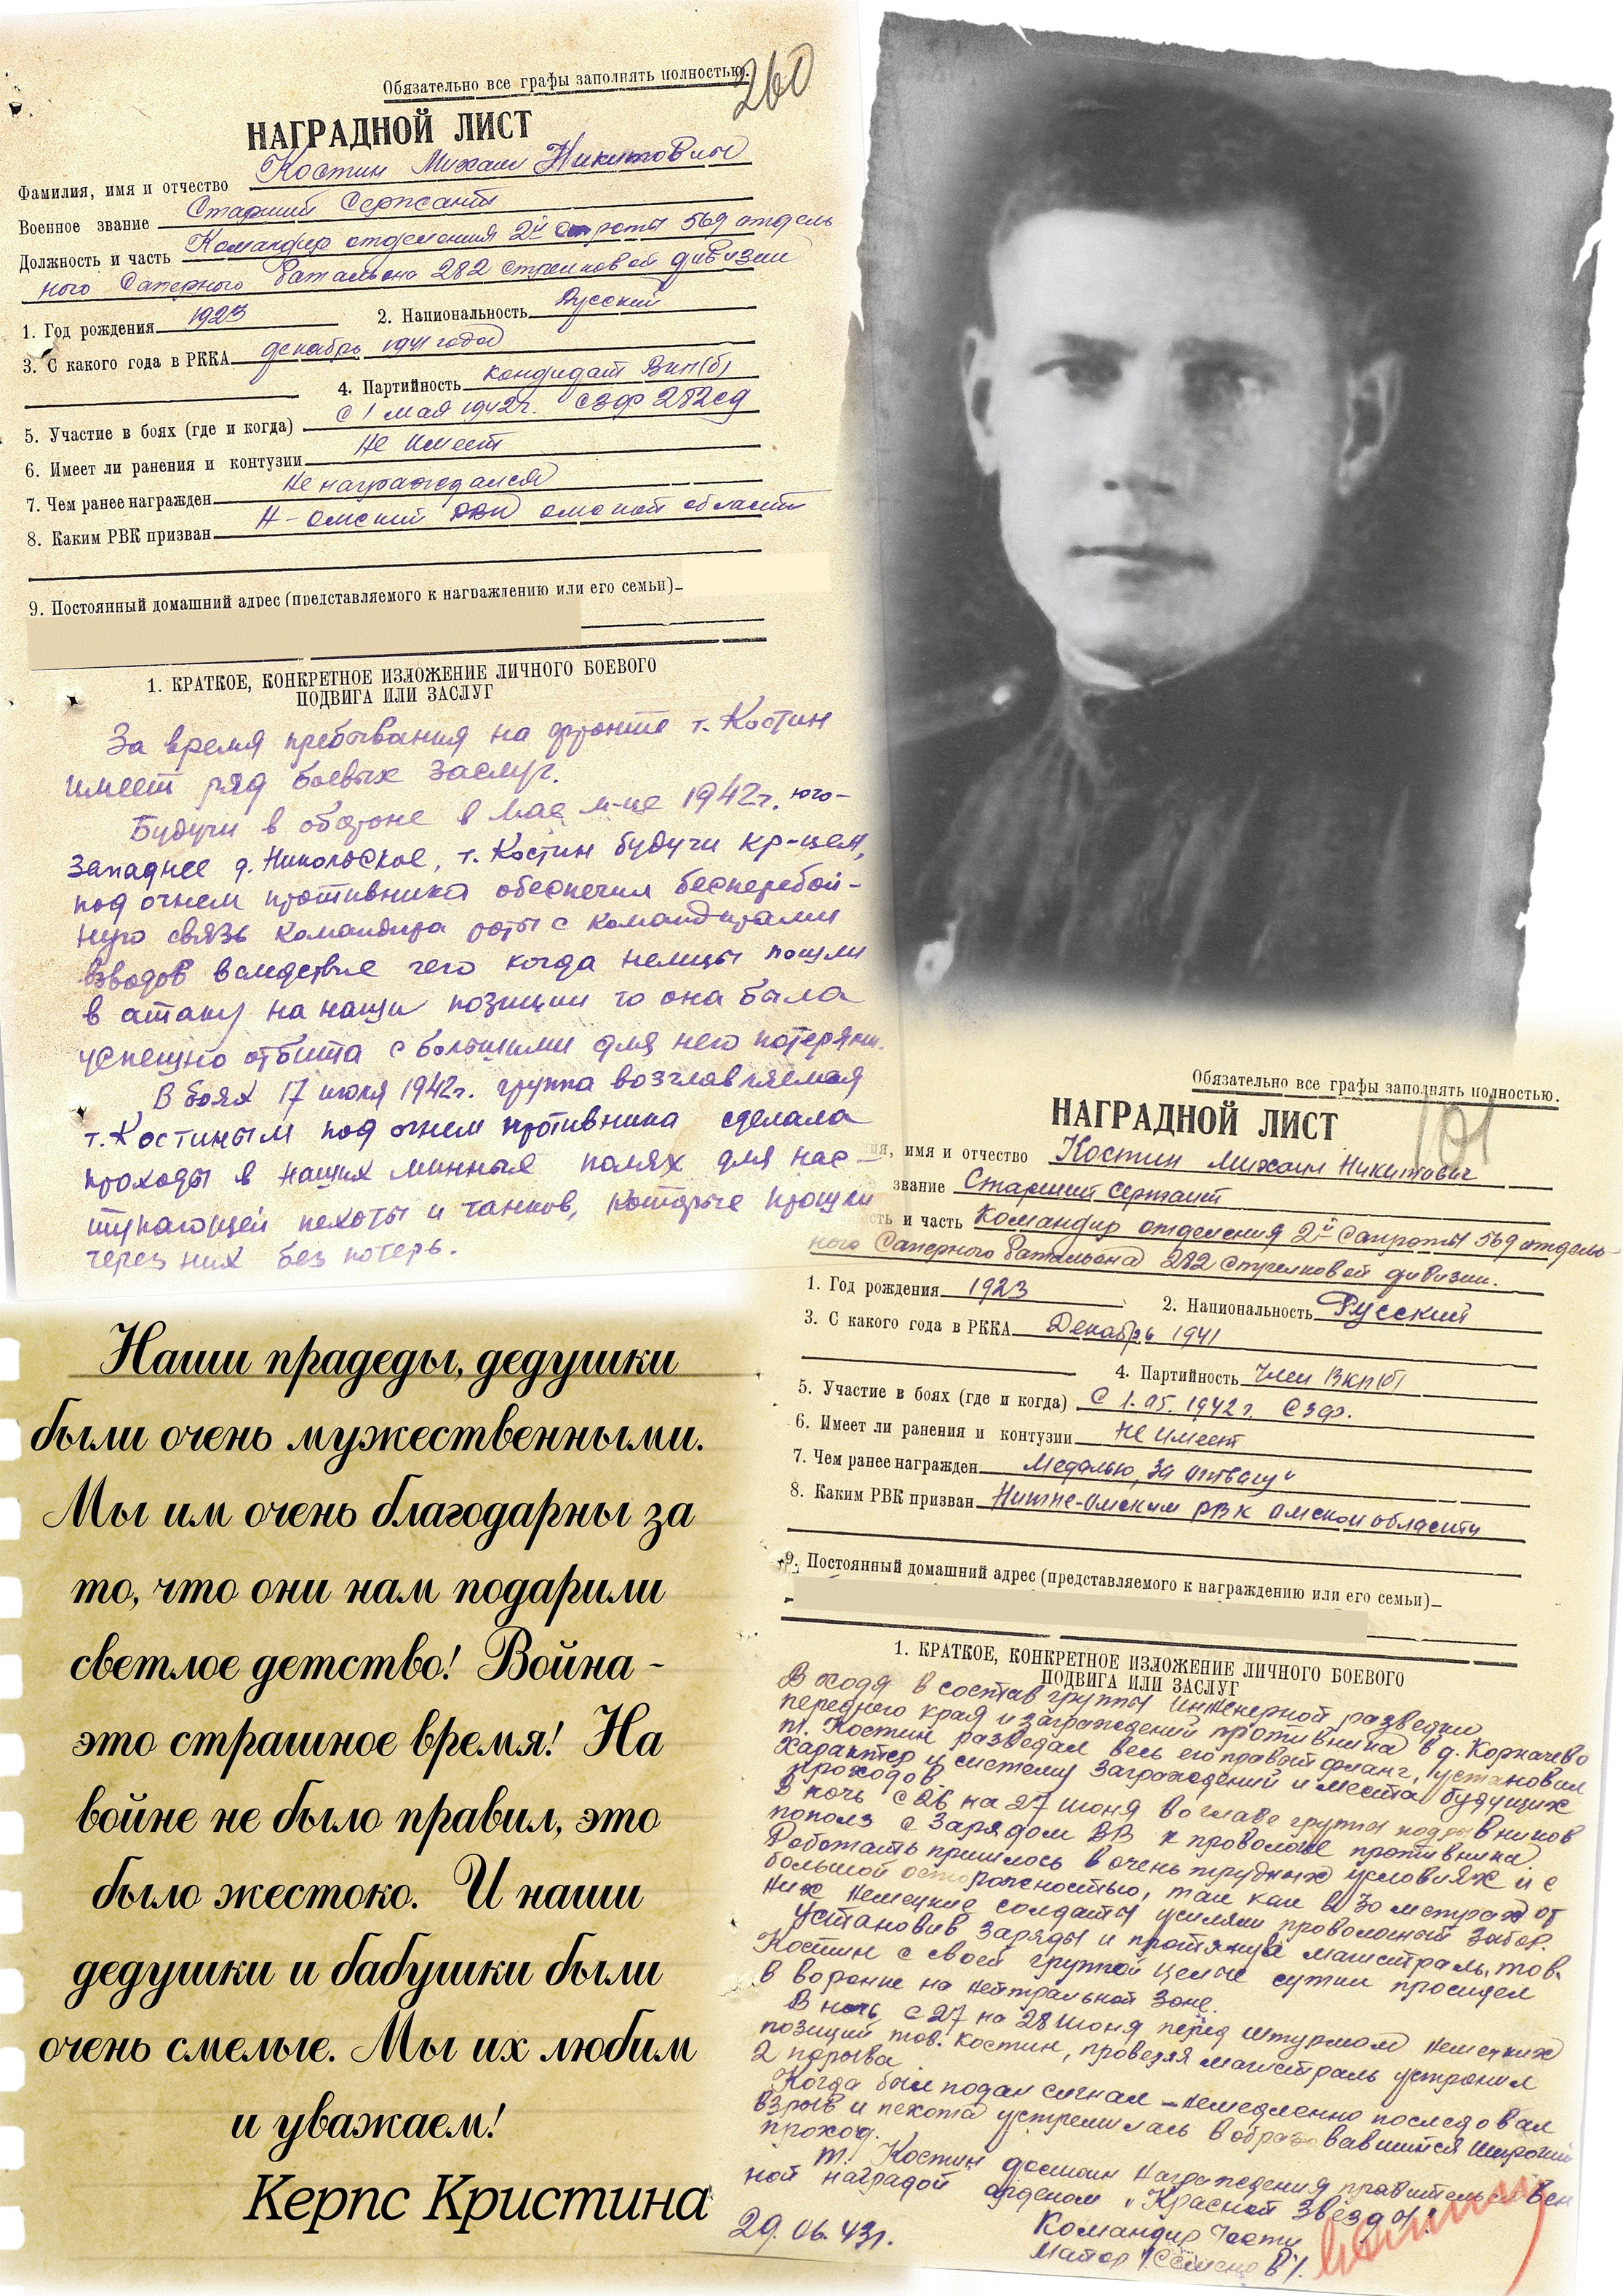 Обязательно все графы заполнять полностью.
260
НАГРАДНОЙ ЛИСТ
Фамилия, имя и отчество Костин Михаил Никитович
Военное звание Старший Сержант
Должность и часть Командир отделения 2й роты 569 отдель
ного Саперного батальона 282 стрелковой дивизии
1. Год рождения 1923 2. Национальность Русский
3. С какого года в РККА декабрь 1941 года
4. Партийность кандидат Вкп(б)
5. Участие в боях (где и когда) С 1 мая 1942г. СЗФ 282сд
6. Имеет ли ранения и контузии Не имеет
7. Чем ранее награжден Не награждался
8. Каким РВК призван Н-Омский РВК омской области
9. Постоянный домашний адрес (представляемого к награждению или его семьи)
1. КРАТКОЕ, КОНКРЕТНОЕ ИЗЛОЖЕНИЕ ЛИЧНОГО БОЕВОГО
ПОДВИГА ИЛИ ЗАСЛУГ
За время пребывания на фронте т. Костин
имеет ряд боевых заслуг.
Будучи в обороне в мае м-це 1942г. юго-
западнее д. Никольское, т. Костин будучи кр-цем,
под огнем противника обеспечил бесперебой-
ную связь командира роты с командирами
взводов вследствие чего когда немцы пошли
в атаку на наши позиции то она была
успешно отбита с большими для него потерями.
В боях 17 июля 1942г. группа возглавляемая
т. Костиным под огнем противника сделала
проходы в наших минных полях для нас-
тупающей пехоты и танков, которые прошли
через них без потерь.
Наши прадеды, дедушки
были очень мужественными.
Мы им очень благодарны за
то, что они нам подарили
светлое детство! Война -
это страшное время! На
войне не было правил, это
было жестоко. И наши
дедушки и бабушки были
очень смелые. Мы их любим
и уважаем!
Керпс Кристина
Обязательно все графы заполнять полностью.
101
НАГРАДНОЙ ЛИСТ
имя и отчество Костин Михаил Никитович
звание Старший сержант
и часть Командир отделения 2й Сапроты 569 отдель-
ного Саперного батальона 282 стрелковой дивизии.
1. Год рождения 1923 2. Национальность Русский
3. С какого года в РККА Декабрь 1941
4. Партийность Член ВКП(б)
5. Участие в боях (где и когда) С 1.05.1942г. СЗФ.
6. Имеет ли ранения и контузии Не имеет
7. Чем ранее награжден Медалью „За отвагу"
8. Каким РВК призван Нижне-Омским РВК Омской области
9. Постоянный домашний адрес (представляемого к награждению или его семьи)
1. КРАТКОЕ, КОНКРЕТНОЕ ИЗЛОЖЕНИЕ ЛИЧНОГО БОЕВОГО
ПОДВИГА ИЛИ ЗАСЛУГ
Входя в состав группы инженерной разведки
переднего края и заграждений противника в д. Корначево
т. Костин разведал весь его правый фланг, установил
характер и систему заграждений и места будущих
проходов.
В ночь с 26 на 27 июня во главе группы подрывников
пополз с зарядом ВВ к проволоке противника.
Работать пришлось в очень трудных условиях и с
большой осторожностью, так как в 30 метрах от
них немецкие солдаты усиляли проволочный забор.
Установив заряды и протянув магистраль, тов.
Костин с своей группой целые сутки просидел
в воронке на нейтральной зоне.
В ночь с 27 на 28 июня перед штурмом немецких
позиций тов. Костин, проверяя магистраль устранил
2 порыва
Когда был подан сигнал - немедленно последовал
взрыв и пехота устремилась в образовавшийся широкий
проход.
т. Костин достоин награждения правительствен
ной наградой орденом „Красной Звезды".
29.06.43г. Командир Части
Майор